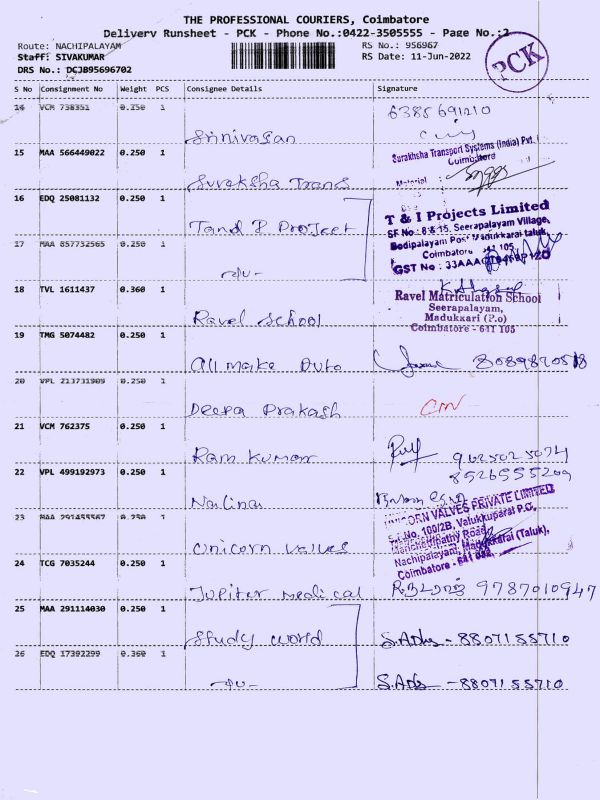 THE PROFESSIONAL COURIERS, Coimbatore
Delivery Runsheet - PCK - Phone No.:0422-3505555 - Page No.:2
Route: NACHIPALAYAM RS No.: 956967
Staff: SIVAKUMAR RS Date: 11-Jun-2022
DRS No.: DCJB95696702
PCK
S No Consignment No Weight PCS Consignee Details Signature
14 VCM 738351 0.250 1 6385691210
Srinivasan
15 MAA 566449022 0.250 1 Surakhsha Transport Systems (India) Pvt.
Coimbatore
Suraksha Trans Material :
16 EDQ 25081132 0.250 1 T & I Projects Limited
Tand I Project SF No : 8 & 15, Seerapalayam Village,
17 MAA 857732565 0.250 1 Bodipalayam Post Madukkarai taluk,
Coimbatore 641 105
-do- GST No : 33AAACT
18 TVL 1611437 0.360 1 Ravel Matriculation School
Seerapalayam,
Ravel School Madukkari (P.o)
Coimbatore - 641 105
19 TMG 5074482 0.250 1
All make Auto 8089820518
20 VPL 213731909 0.250 1
Deepa Prakash
21 VCM 762375 0.250 1
Ram Kumar 9625025074
22 VPL 499192973 0.250 1 8526555209
Nalina
23 MAA 291455567 0.250 1 UNICORN VALVES PRIVATE LIMITED
S.F.No. 100/2B, Valukkuparai P.O,
Unicorn valves Nachipalayam, Madukkarai (Taluk),
24 TCG 7035244 0.250 1 Coimbatore - 641 032.
Jupiter medical 9787010947
25 MAA 291114030 0.250 1
Study world -8807155710
26 EDQ 17392299 0.360 1
-do- -8807155710